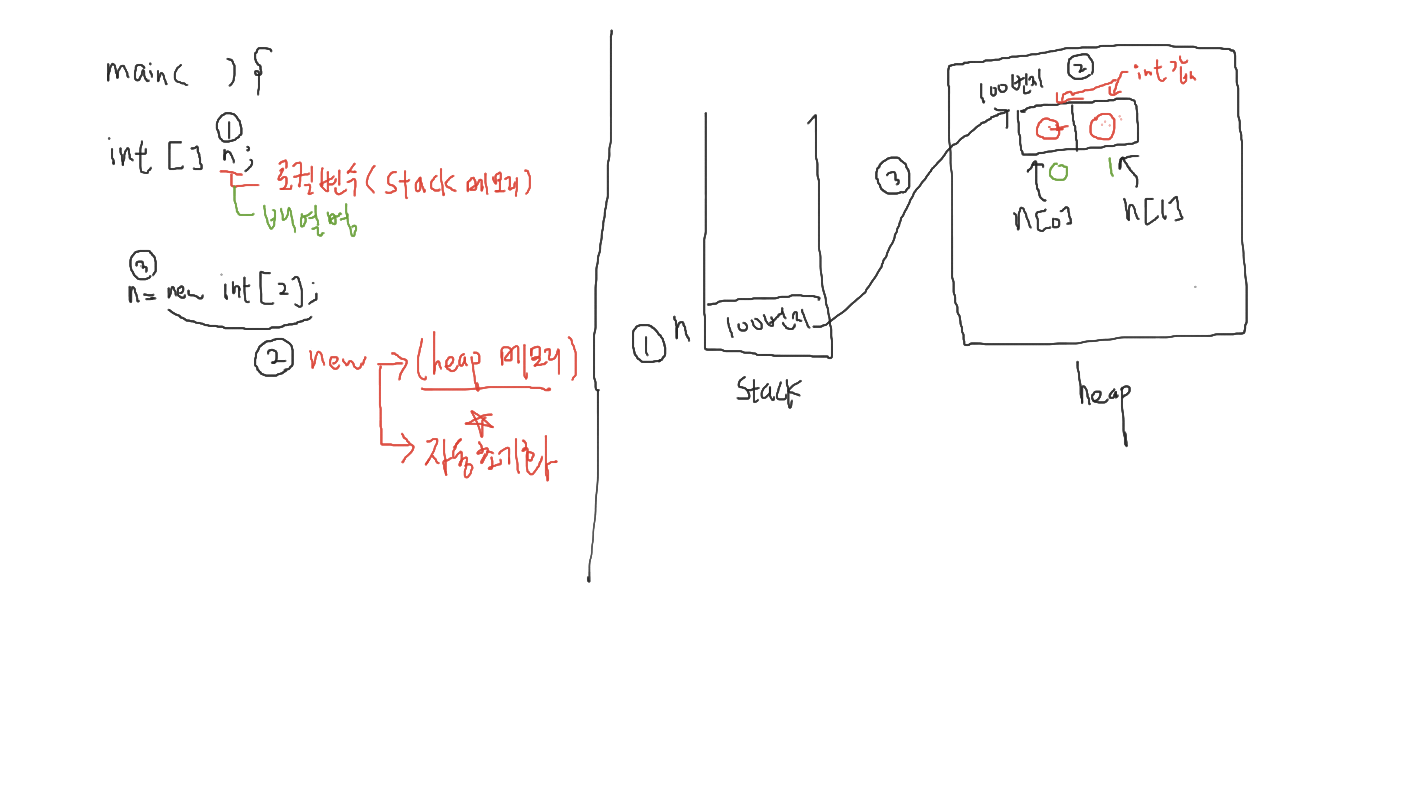 main( ) {
①
int [] n;
로컬변수(Stack 메모리)
배열명
③
n = new int[2];
② new → (heap 메모리)
자동초기화
① n
100번지
Stack
③
100번지
②
int 값
0 0
0 1
n[0]
n[1]
heap